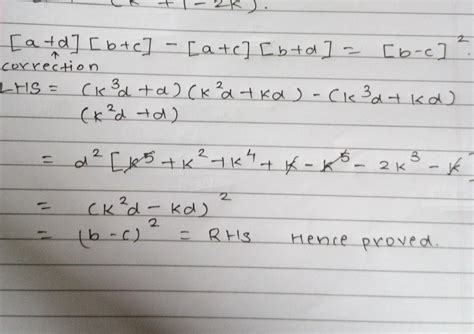 (k + 1 - 2k).
[a+d] [b+c] - [a+c] [b+d] = [b-c]².
↑
correction
LHS = (k³d + d) (k²d + kd) - (k³d + kd)
(k²d + d)
= d² [k⁵ + k² + k⁴ + k - k⁵ - 2k³ - k
= (k²d - kd)²
= (b - c)² = RHS Hence proved.